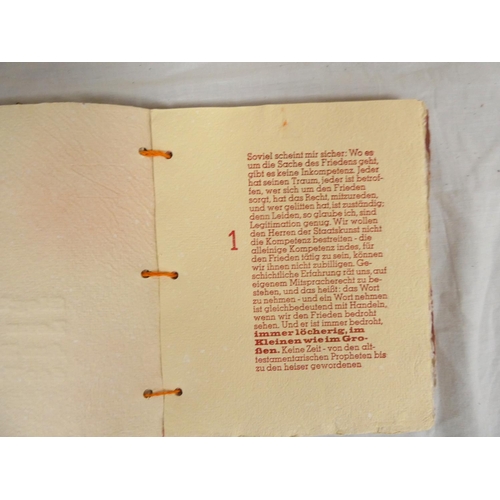 Soviel scheint mir sicher: Wo es
um die Sache des Friedens geht,
gibt es keine Inkompetenz. Jeder
hat seinen Traum, jeder ist betrof-
fen, wer sich um den Frieden
sorgt, hat das Recht, mitzureden,
und wer gelitten hat, ist zuständig;
denn Leiden, so glaube ich, sind
Legitimation genug. Wir wollen
den Herren der Staatskunst nicht
1
die Kompetenz bestreiten - die
alleinige Kompetenz indes, für
den Frieden tätig zu sein, können
wir ihnen nicht zubilligen. Ge-
schichtliche Erfahrung rät uns, auf
eigenem Mitspracherecht zu be-
stehen, und das heißt: das Wort
zu nehmen - und ein Wort nehmen
ist gleichbedeutend mit Handeln,
wenn wir den Frieden bedroht
sehen. Und er ist immer bedroht,
immer löcherig, im
Kleinen wie im Gro-
ßen. Keine Zeit - von den alt-
testamentarischen Propheten bis
zu den heiser gewordenen